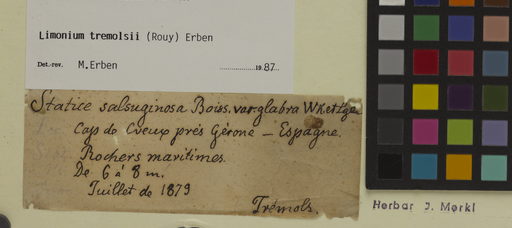 Limonium tremolsii (Rouy) Erben
Det.-rev. M.Erben 1987
Statice salsuginosa Boiss. var. glabra
Cap de Creux près Gérone — Espagne.
Rochers maritimes.
De 6 à 8 m.
Juillet de 1879
Trémols.
Herbar J. Merkl